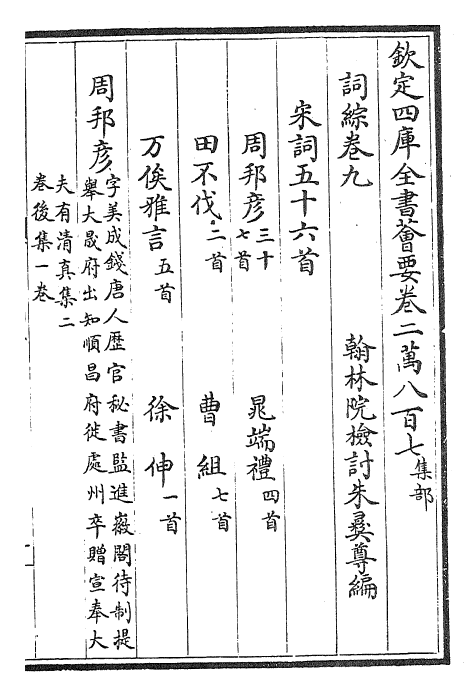 欽定四庫全書薈要卷二萬八百七集部
詞綜卷九
翰林院檢討朱彝尊編
宋詞五十六首
周邦彥三十七首 晁端禮四首
田不伐二首 曹組七首
万俟雅言五首 徐伸一首
周邦彥字美成錢唐人歷官秘書監進徽閣待制提
舉大晟府出知順昌府徙處州卒贈宣奉大
夫有清真集二
卷後集一卷